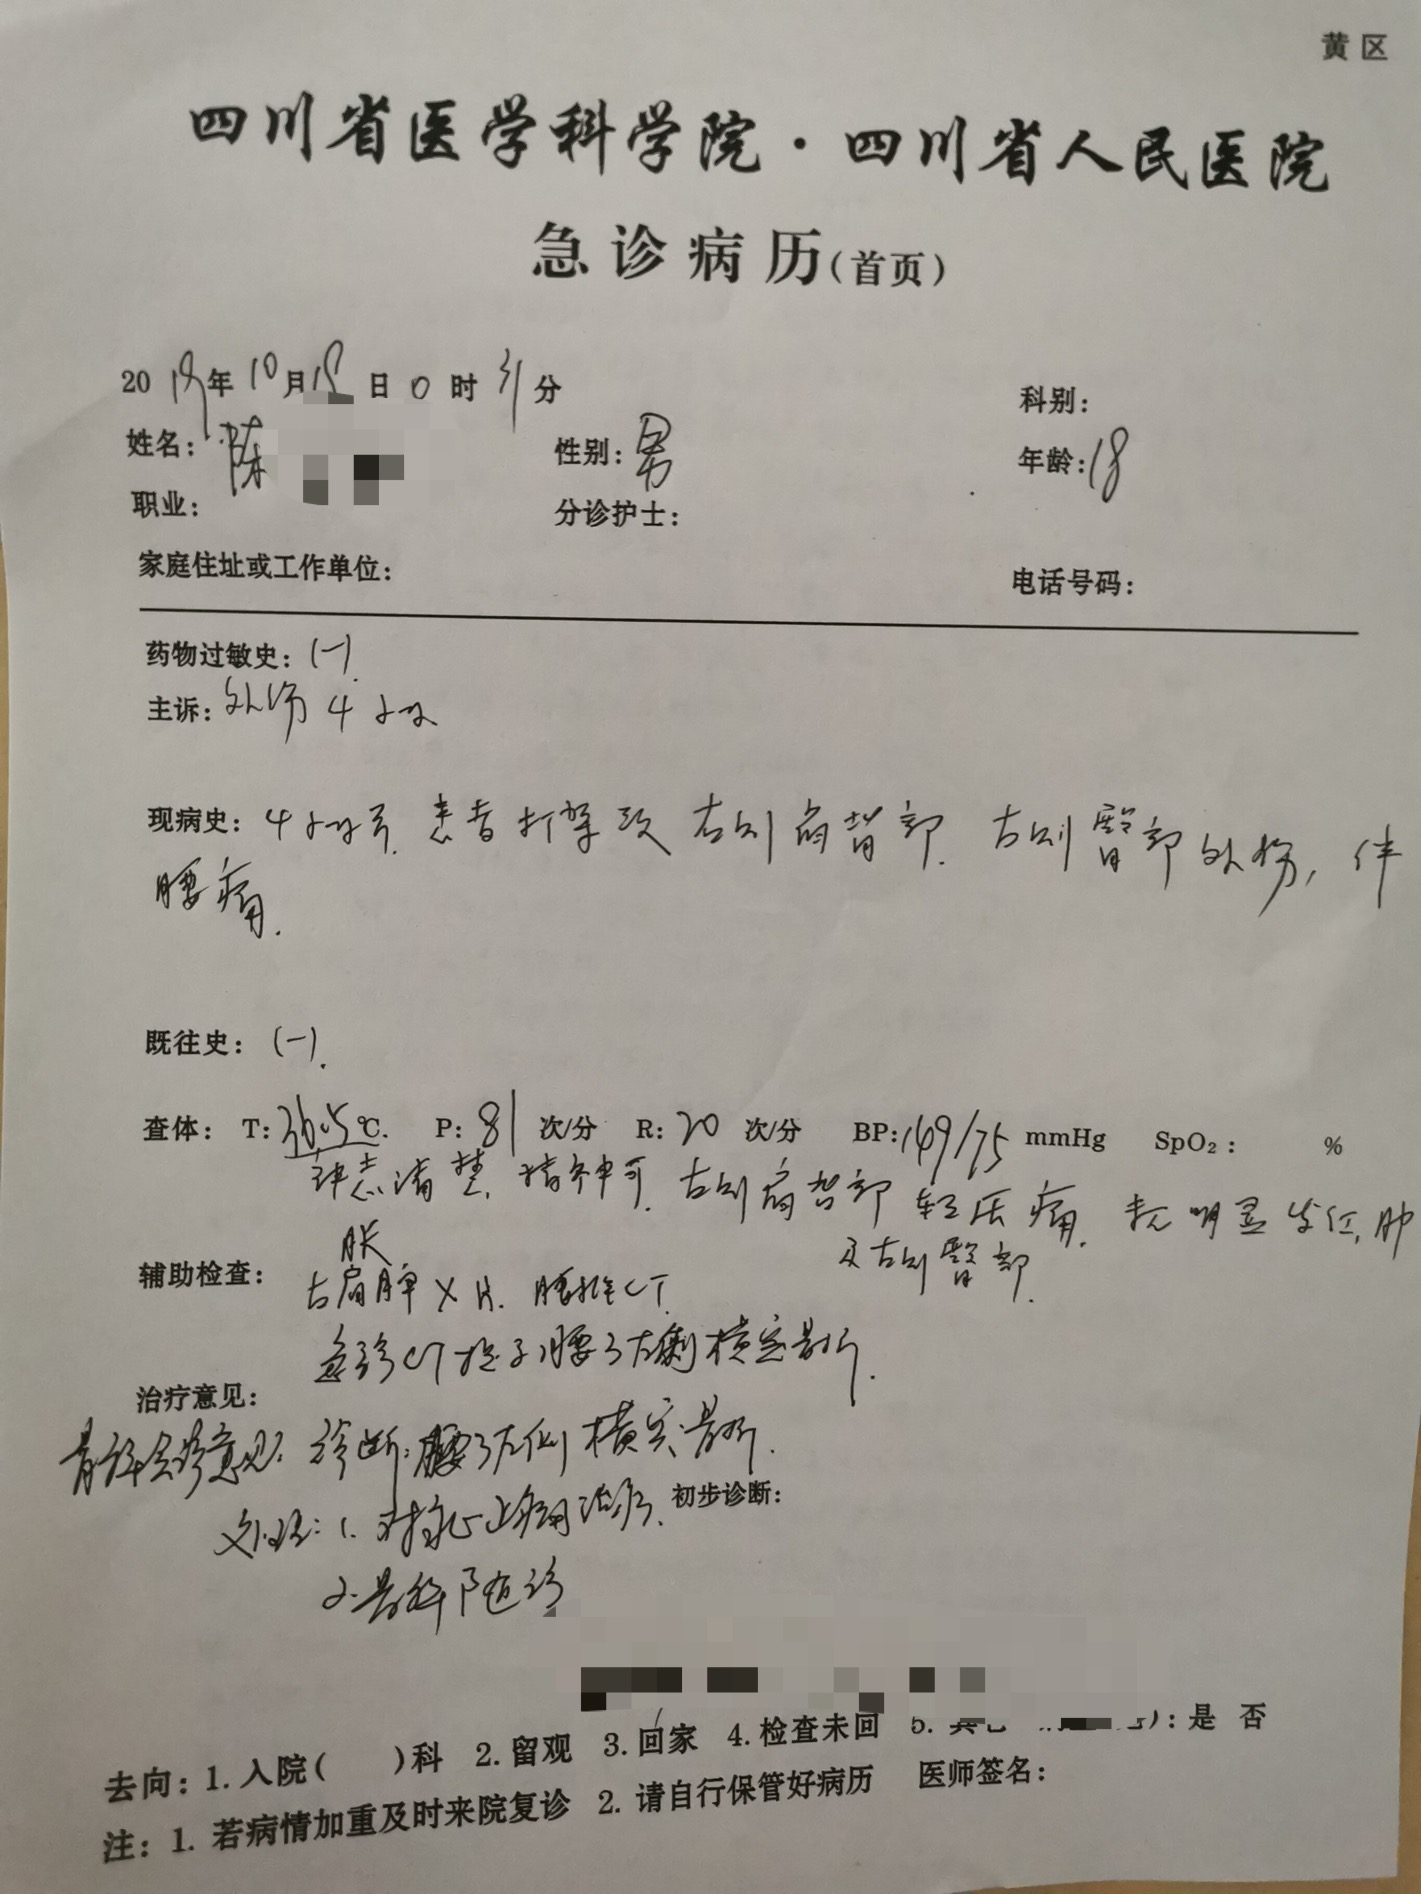 黄区
四川省医学科学院·四川省人民医院
急诊病历(首页)
2019年10月18日0时31分
科别:
姓名:陈 性别:男 年龄:18
职业: 分诊护士:
家庭住址或工作单位: 电话号码:
药物过敏史:(-).
主诉:外伤4小时
现病史:4小时前,患者打架致右侧肩背部.右侧臀部外伤,伴
腰痛.
既往史:(-).
查体: T:36.5℃. P:81次/分 R:20次/分 BP:149/75 mmHg SpO₂: %
神志清楚,精神可.右侧肩背部轻压痛.无明显畸形,肿
胀 及右侧臀部.
辅助检查: 右肩胛X片.腰椎CT
急诊CT提示腰3左侧横突骨折.
治疗意见:
骨科会诊意见:诊断:腰3左侧横突骨折.
处理:1.对症止痛治疗. 初步诊断:
2.骨科随诊
去向:1.入院( )科 2.留观 3.回家 4.检查未回 5.其它 ):是 否
注:1.若病情加重及时来院复诊 2.请自行保管好病历 医师签名: